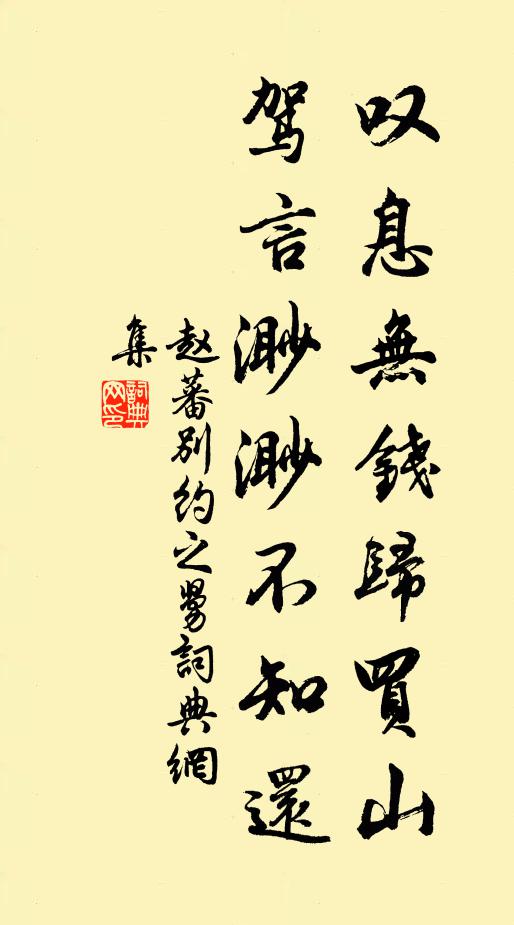 叹息無錢歸買山
駕言渺渺不知還
赵蕃别约之舅詞典網
集
詞典網印